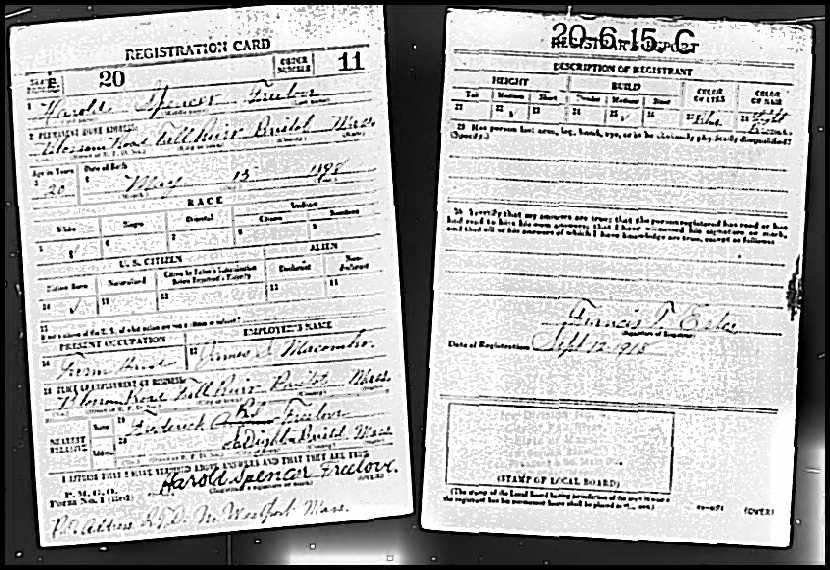 REGISTRATION CARD
20
ORDER NUMBER 11
1 Harold Spencer Freelove
2 PERMANENT HOME ADDRESS
Blossom Road Fall River Bristol Mass.
Age in Years
Date of Birth
20
May 15 1898
RACE
White
Negro
Oriental
Indian
Citizen
Noncitizen
U. S. CITIZEN
ALIEN
Native Born
Naturalized
Declarant
Non-declarant
15
PRESENT OCCUPATION
EMPLOYER'S NAME
Farm Hand
James S. Macomber.
18 PLACE OF EMPLOYMENT OR BUSINESS
Blossom Road Fall River Bristol Mass.
NEAREST RELATIVE
Name
19 Frederick A. Freelove
Address
20
Bristol Mass
I AFFIRM THAT I HAVE VERIFIED ABOVE ANSWERS AND THAT THEY ARE TRUE
P. M. G. O.
Form No. 1 (Red)
Harold Spencer Freelove.
(OVER)
P.O. Address R.F.D. N. Westport Mass.
20-6-15. C
REGISTRAR'S REPORT
DESCRIPTION OF REGISTRANT
HEIGHT
BUILD
COLOR OF EYES
COLOR OF HAIR
Tall
Medium
Short
Slender
Medium
Stout
21
22
23
24
25
26
27 Blue
28 Light
29 Has person lost arm, leg, hand, eye, or is he obviously physically disqualified?
(Specify.)
30 I certify that my answers are true; that the person registered has read or has
had read to him his own answers; that I have witnessed his signature or mark,
and that all of his answers of which I have knowledge are true, except as follows:
Francis T. Estes
(Signature of Registrar)
Date of Registration Sept 12 1918
(STAMP OF LOCAL BOARD)
(The stamp of the Local Board having jurisdiction of the area in which
the registrant has his permanent home shall be placed in this box.)
(OVER)